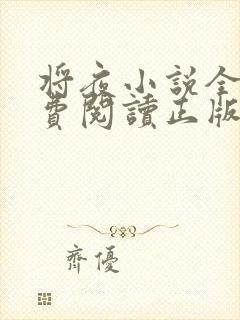 将夜小説全
費閱讀正版
齊優